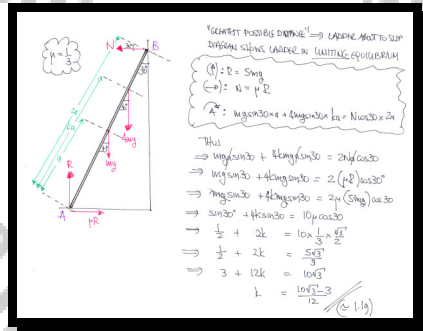 "GREATEST POSSIBLE DISTANCE" ⇒ LADDER ABOUT TO SLIP
DIAGRAM SHOWS LADDER IN LIMITING EQUILIBRIUM
μ = 1/3
N
B
30°
2a
ka
a
30°
4mg
30°
mg
R
A
μR
(↑): R = 5mg
(→): N = μR
A: mgsin30×a + 4mgsin30×ka = Ncos30×2a
THUS
⇒ mgasin30 + 4kmgasin30 = 2Nacos30
⇒ mgsin30 + 4kmgsin30 = 2(μR)cos30°
⇒ mgsin30 + 4kmgsin30 = 2μ(5mg)cos30
⇒ sin30° + 4ksin30 = 10μcos30
⇒ 1/2 + 2k = 10 × 1/3 × √3/2
⇒ 1/2 + 2k = 5√3/3
⇒ 3 + 12k = 10√3
k = (10√3 - 3)/12
(≃ 1.19)